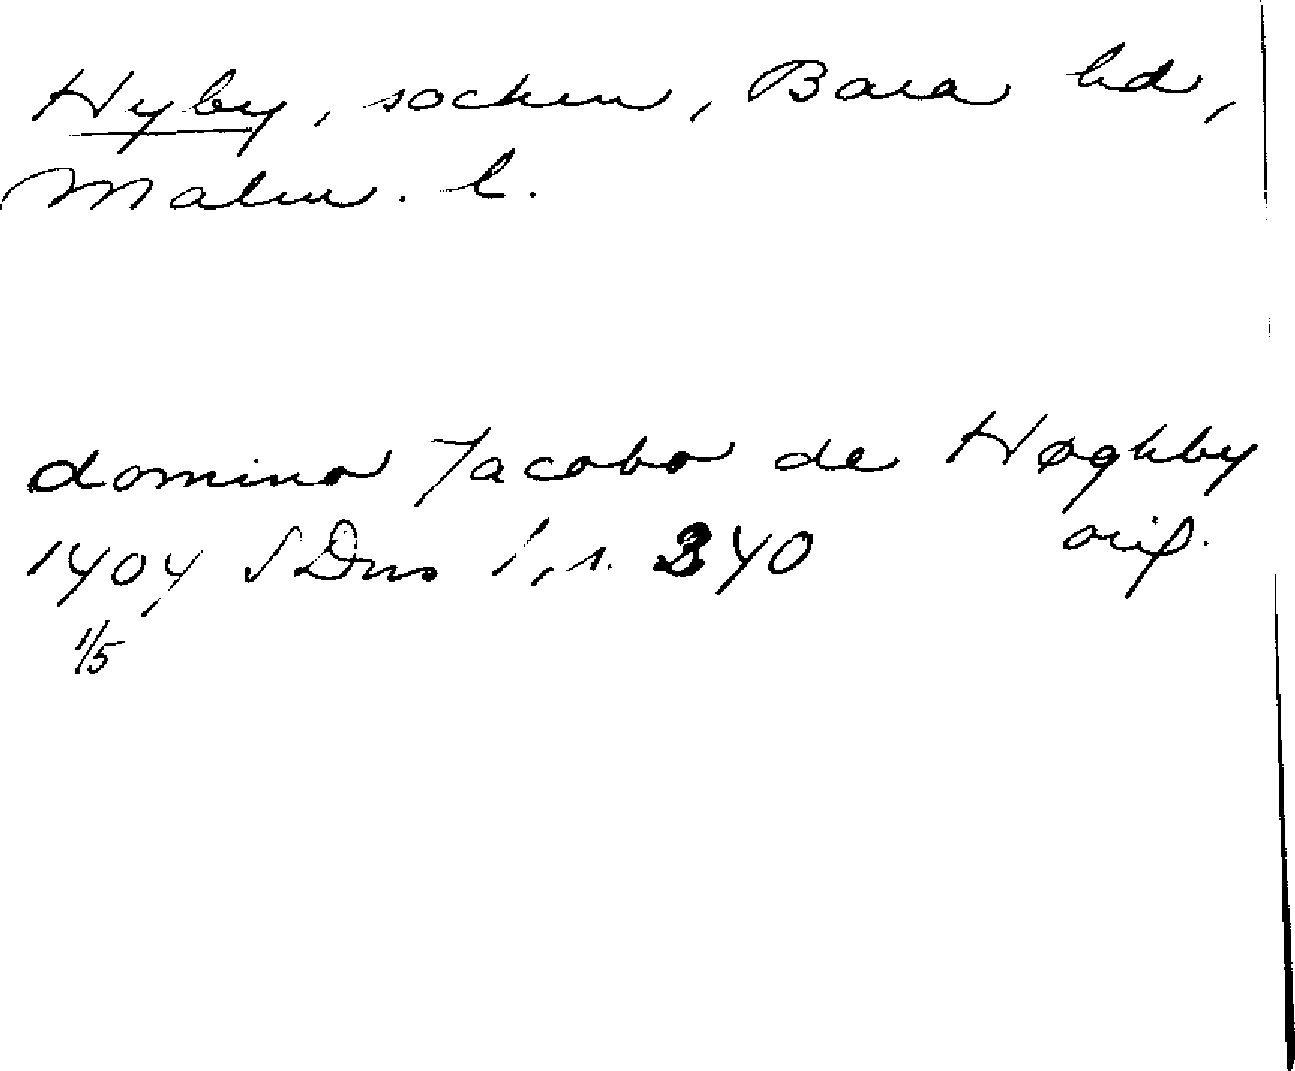 Hyby, socken, Bara hd,
Malm. l.
domino Jacobo de Høghby
1404 SDns 1, s. 340 orig.
1/5